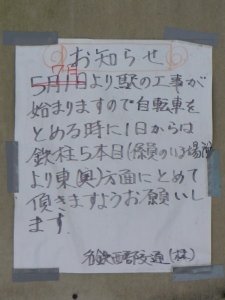 お知らせ
7日
5月1日より駅の工事が
始まりますので自転車を
とめる時に1日からは
鉄柱5本目(僕のいる場所)
より東(奥)方面にとめて
頂きますようお願いし
ます。
名鉄西部交通(株)